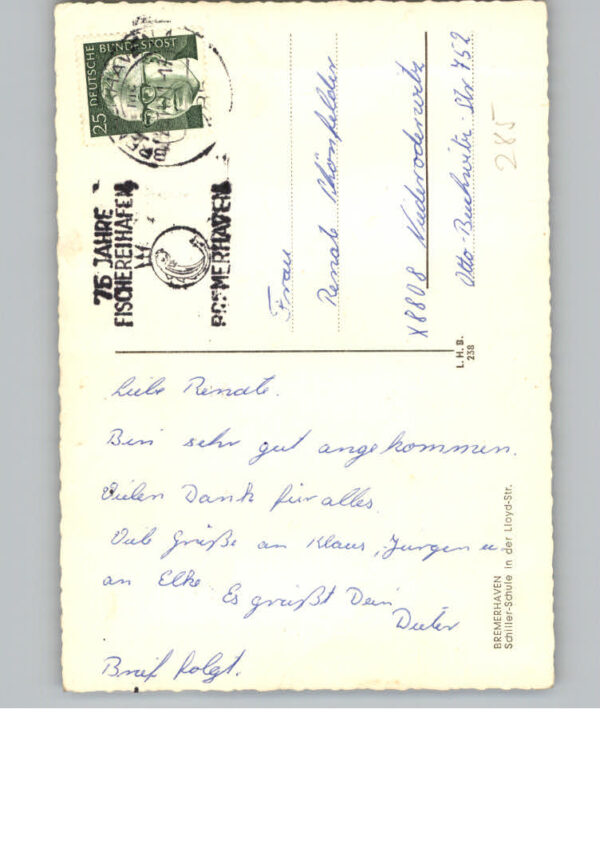 Liebe Renate.
Bin sehr gut angekommen.
Vielen Dank für alles.
Viele Grüße an Klaus, Jürgen u.
an Elke.
Es grüßt Dein
Dieter
Brief folgt.
25 DEUTSCHE BUNDESPOST
75 JAHRE
FISCHEREIHAFEN
BREMERHAVEN
Frau
Renate Schönfelder
X8808 Niederoderwitz
Otto-Buchwitz-Str. 752
285
L.H.B.
238
BREMERHAVEN
Schiller-Schule in der Lloyd-Str.